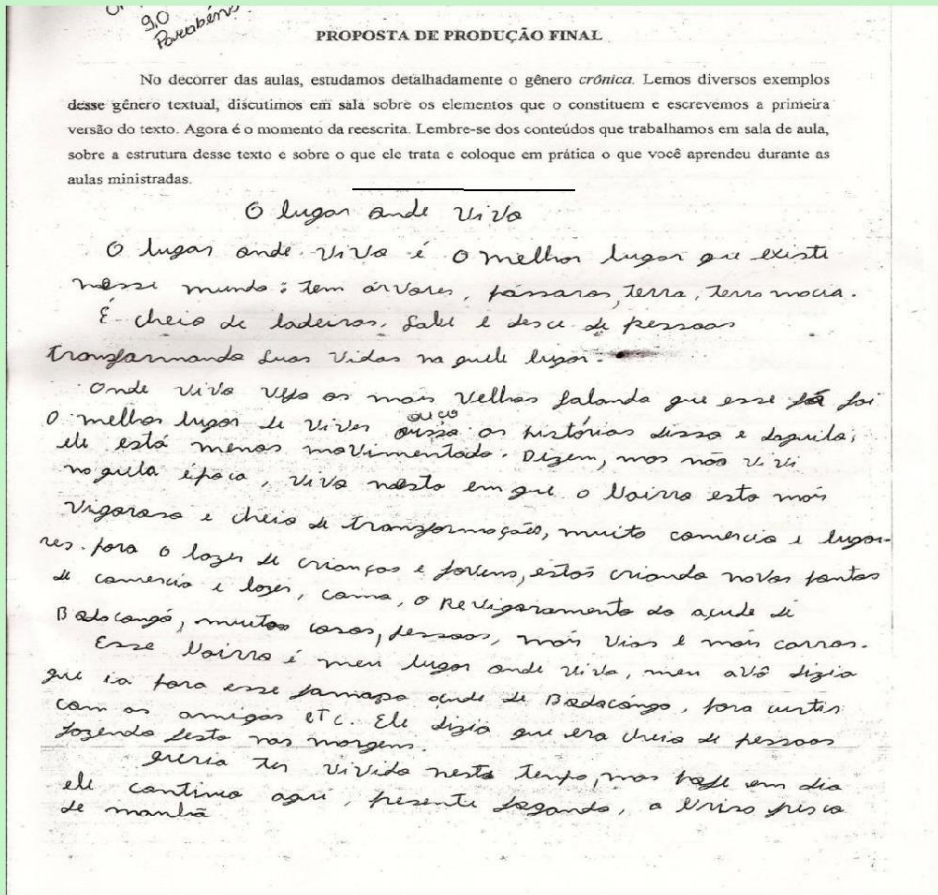 9,0
Parabéns
PROPOSTA DE PRODUÇÃO FINAL
No decorrer das aulas, estudamos detalhadamente o gênero crônica. Lemos diversos exemplos
desse gênero textual, discutimos em sala sobre os elementos que o constituem e escrevemos a primeira
versão do texto. Agora é o momento da reescrita. Lembre-se dos conteúdos que trabalhamos em sala de aula,
sobre a estrutura desse texto e sobre o que ele trata e coloque em prática o que você aprendeu durante as
aulas ministradas.
O lugar onde vivo
O lugar onde vivo é o melhor lugar que existe
nesse mundo: tem árvores, pássaros, terra, terra macia.
É cheio de ladeiras, sobe e desce de pessoas
transformando suas vidas na quele lugar.
Onde vivo vejo os mais velhos falando que esse já foi
o melhor lugar de viver ouço as histórias disso e daquilo,
ele está menos movimentado. Dizem, mas não vivi
naquela época, vivo nesta em que o bairro esta mais
vigoroso e cheio de transformações, muito comercio e luga-
res para o lazer de crianças e jovens, estão criando novos pontos
de comercio e lazer, como, o revigoramento do açude de
Bodocongó, muitas casas, pessoas, mais vias e mais carros.
Esse bairro é meu lugar onde vivo, meu avô dizia
que ia para esse famoso açude de Bodocongó, para curtir
com os amigos etc. Ele dizia que era cheio de pessoas
fazendo festa nas margens.
Queria ter vivido neste tempo, mas hoje em dia
ele continua aqui, presente, a brisa
de manhã